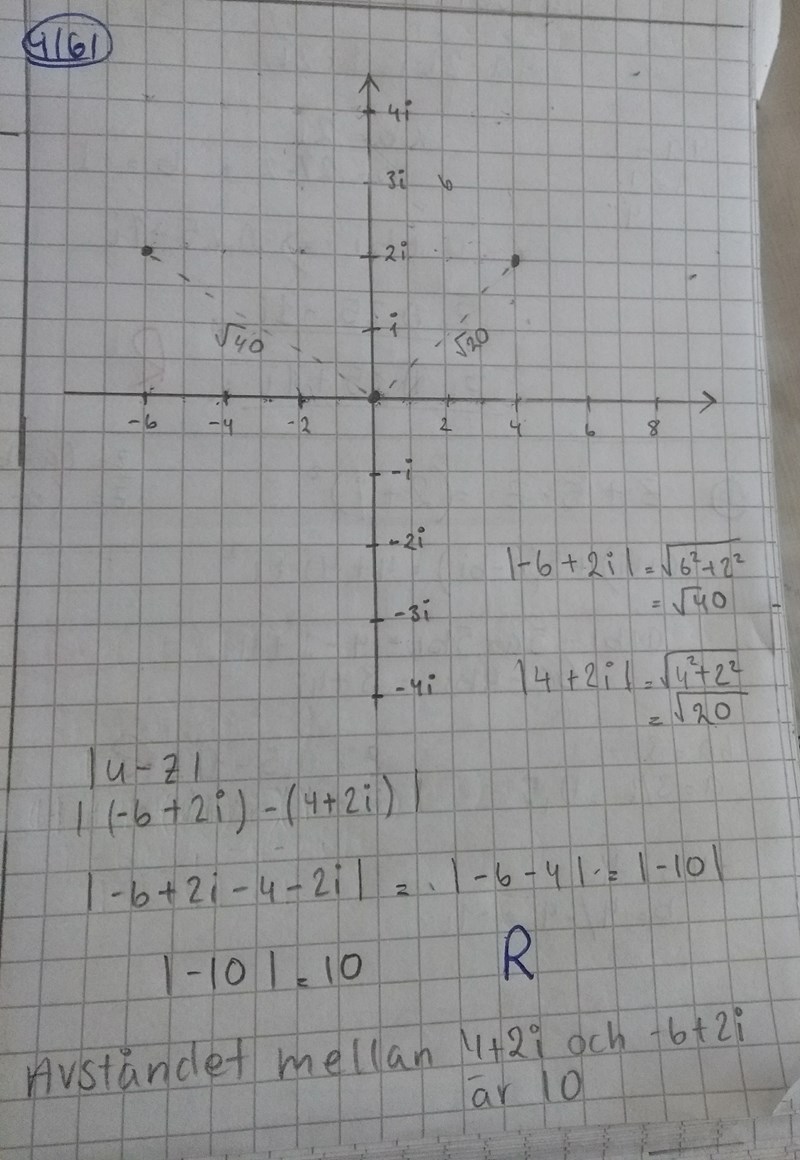 4161
4i
3i 6
2i
i
√40 √20
-6 -4 -2 2 4 6 8
-i
-2i
-3i
-4i
|-6+2i| = √6²+2²
= √40
|4+2i| = √4²+2²
= √20
|u-z|
|(-6+2i)-(4+2i)|
|-6+2i-4-2i| = |-6-4| = |-10|
|-10| = 10 R
Avståndet mellan 4+2i och -6+2i
är 10